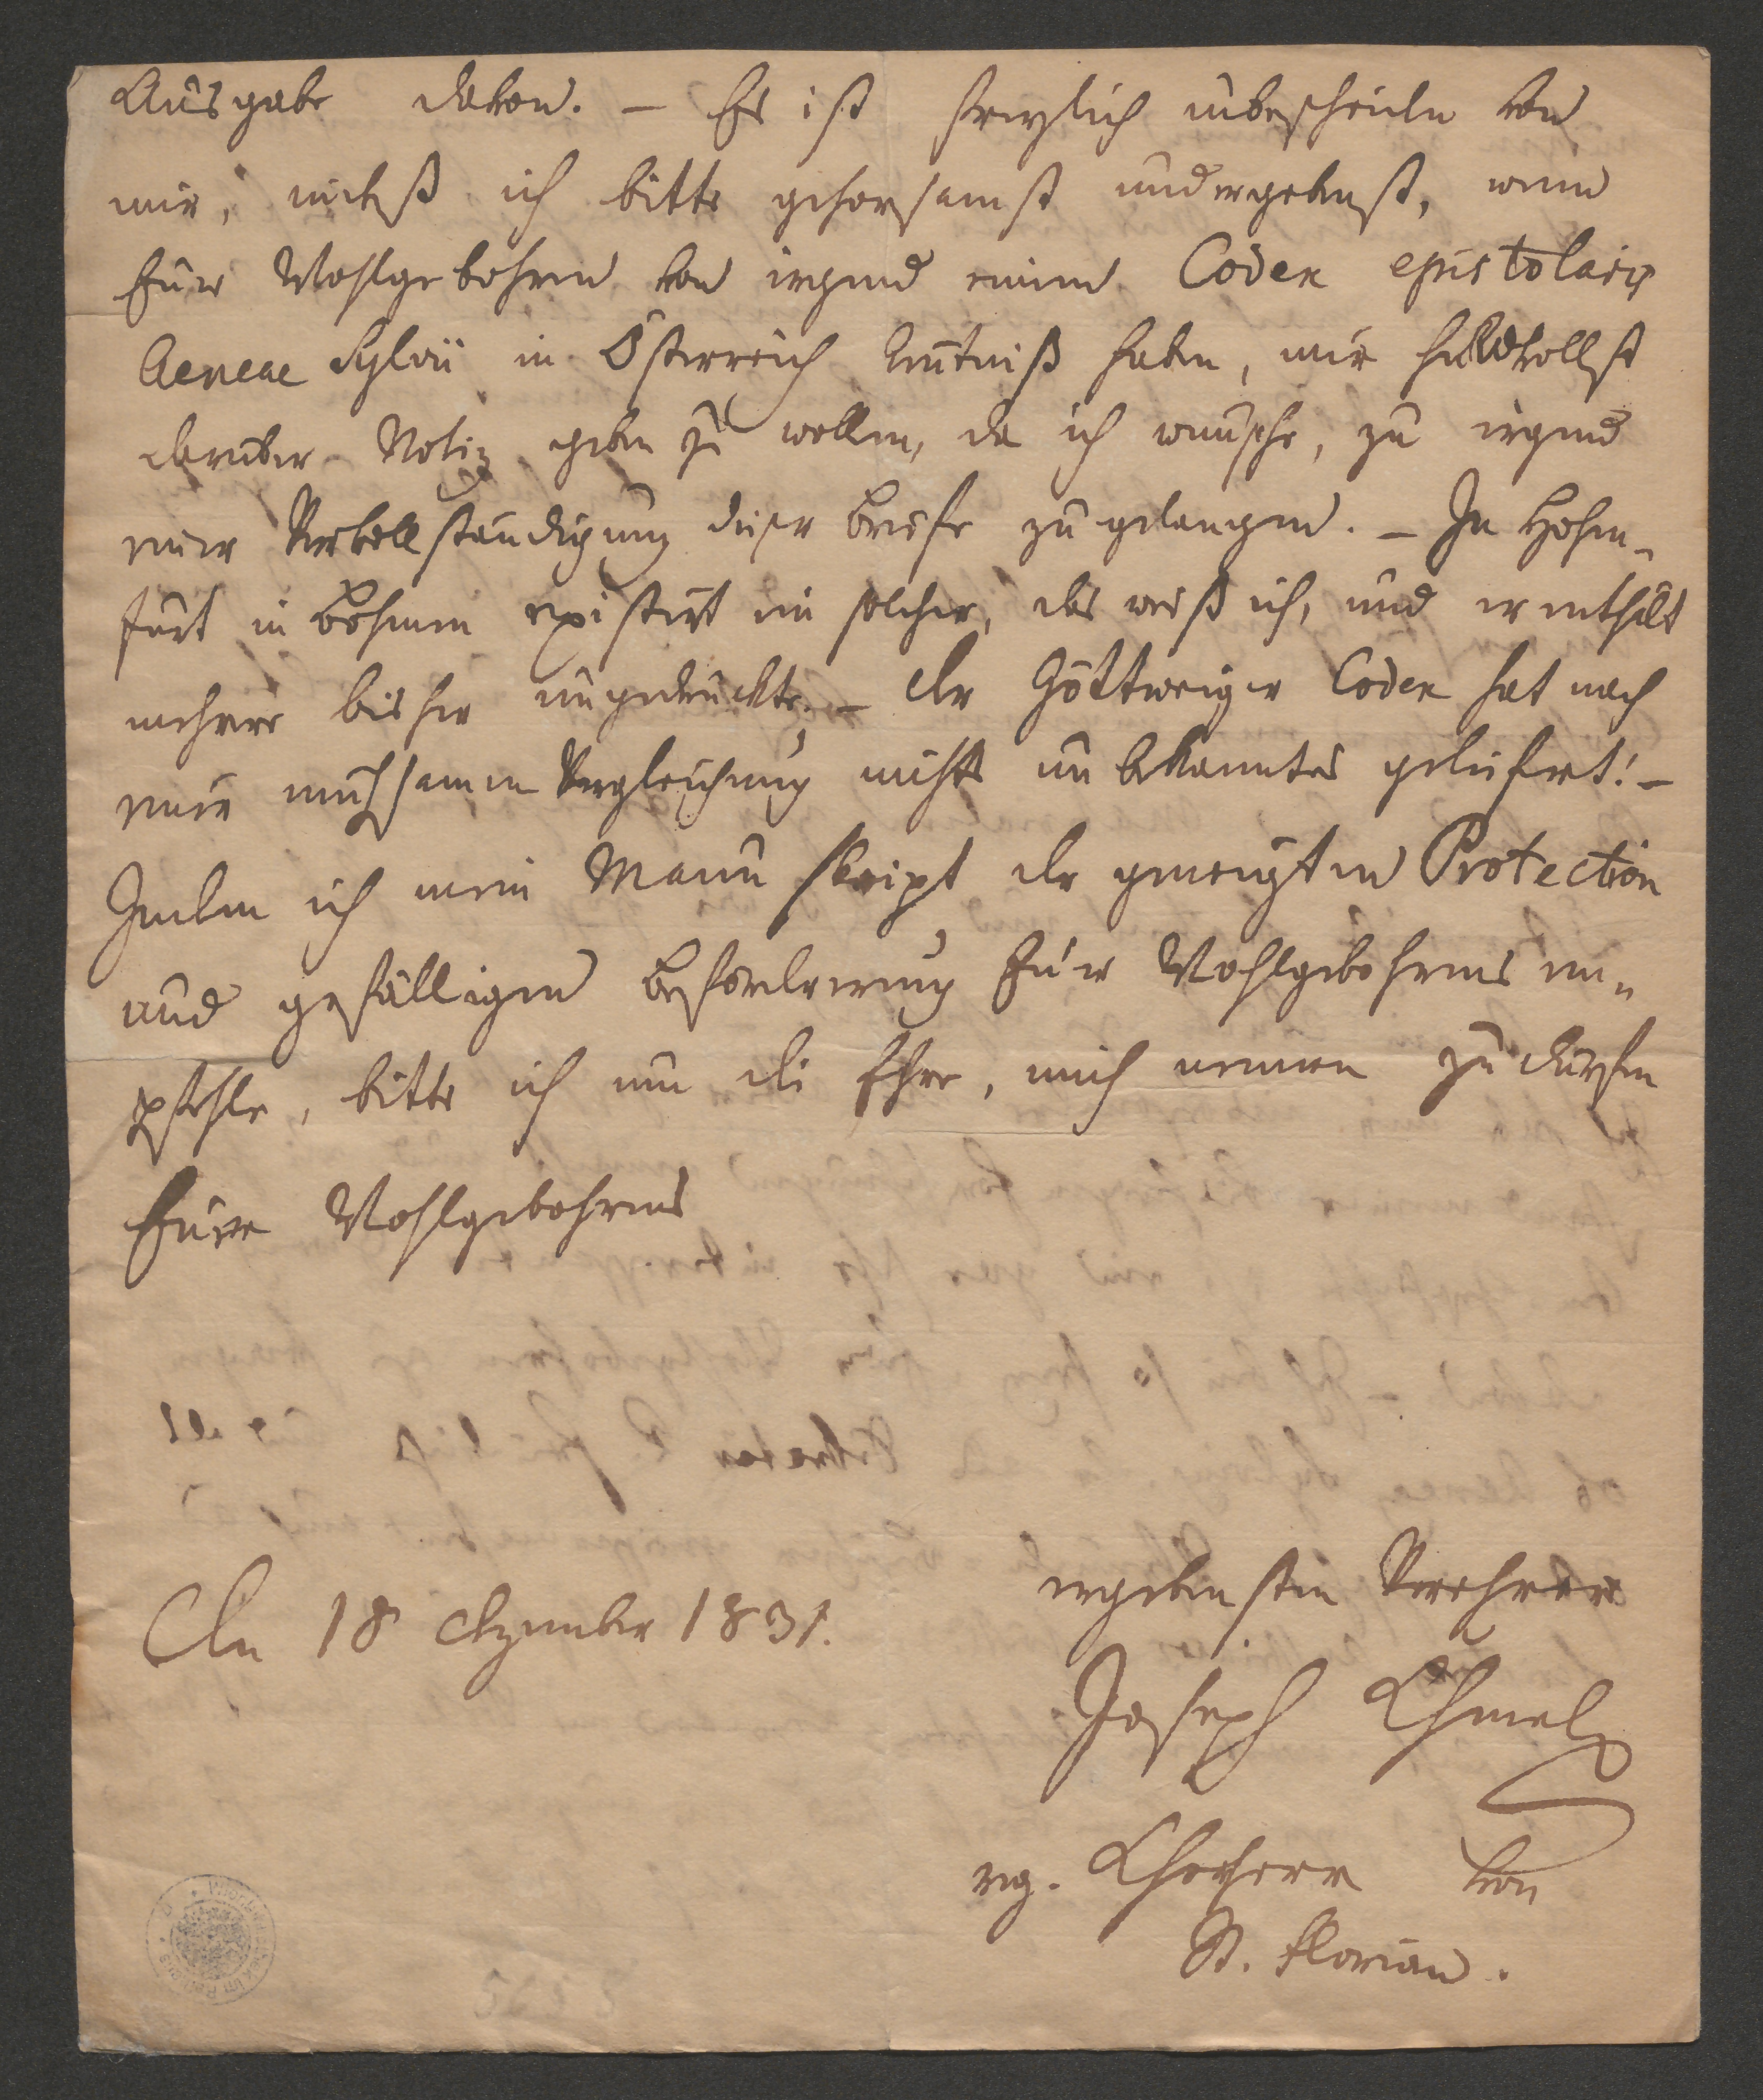 Ausgabe davon. – Es ist freylich unbescheiden von
mir, indeß ich bitte gehorsamst und ergebenst, wenn
Euer Wohlgebohren von irgend einem Codex epistolaris
Aeneae Sylvii in Österreich Kenntniß haben, mir huldvollst
darüber Notiz geben zu wollen, da ich wünsche, zu irgend
einer Vervollständigung dieser Briefe zu gelangen. – In Hohen-
furt in Böhmen existirt ein solcher, das weiß ich, und er enthält
mehrere bisher ungedruckte, – der Göttweiger Codex hat nach
einer mühsamen Vergleichung nichts unbekanntes geliefert! –
Indem ich mein Manuskript der geneigten Protection
und gefälligen Beförderung Euer Wohlgebohrens em-
pfehle, bitte ich um die Ehre, mich nennen zu dürfen
Eurer Wohlgebohrens
ergebensten Verehrer
Den 18 Dezember 1831.
Joseph Chmel
reg. Chorherr von
St. Florian.